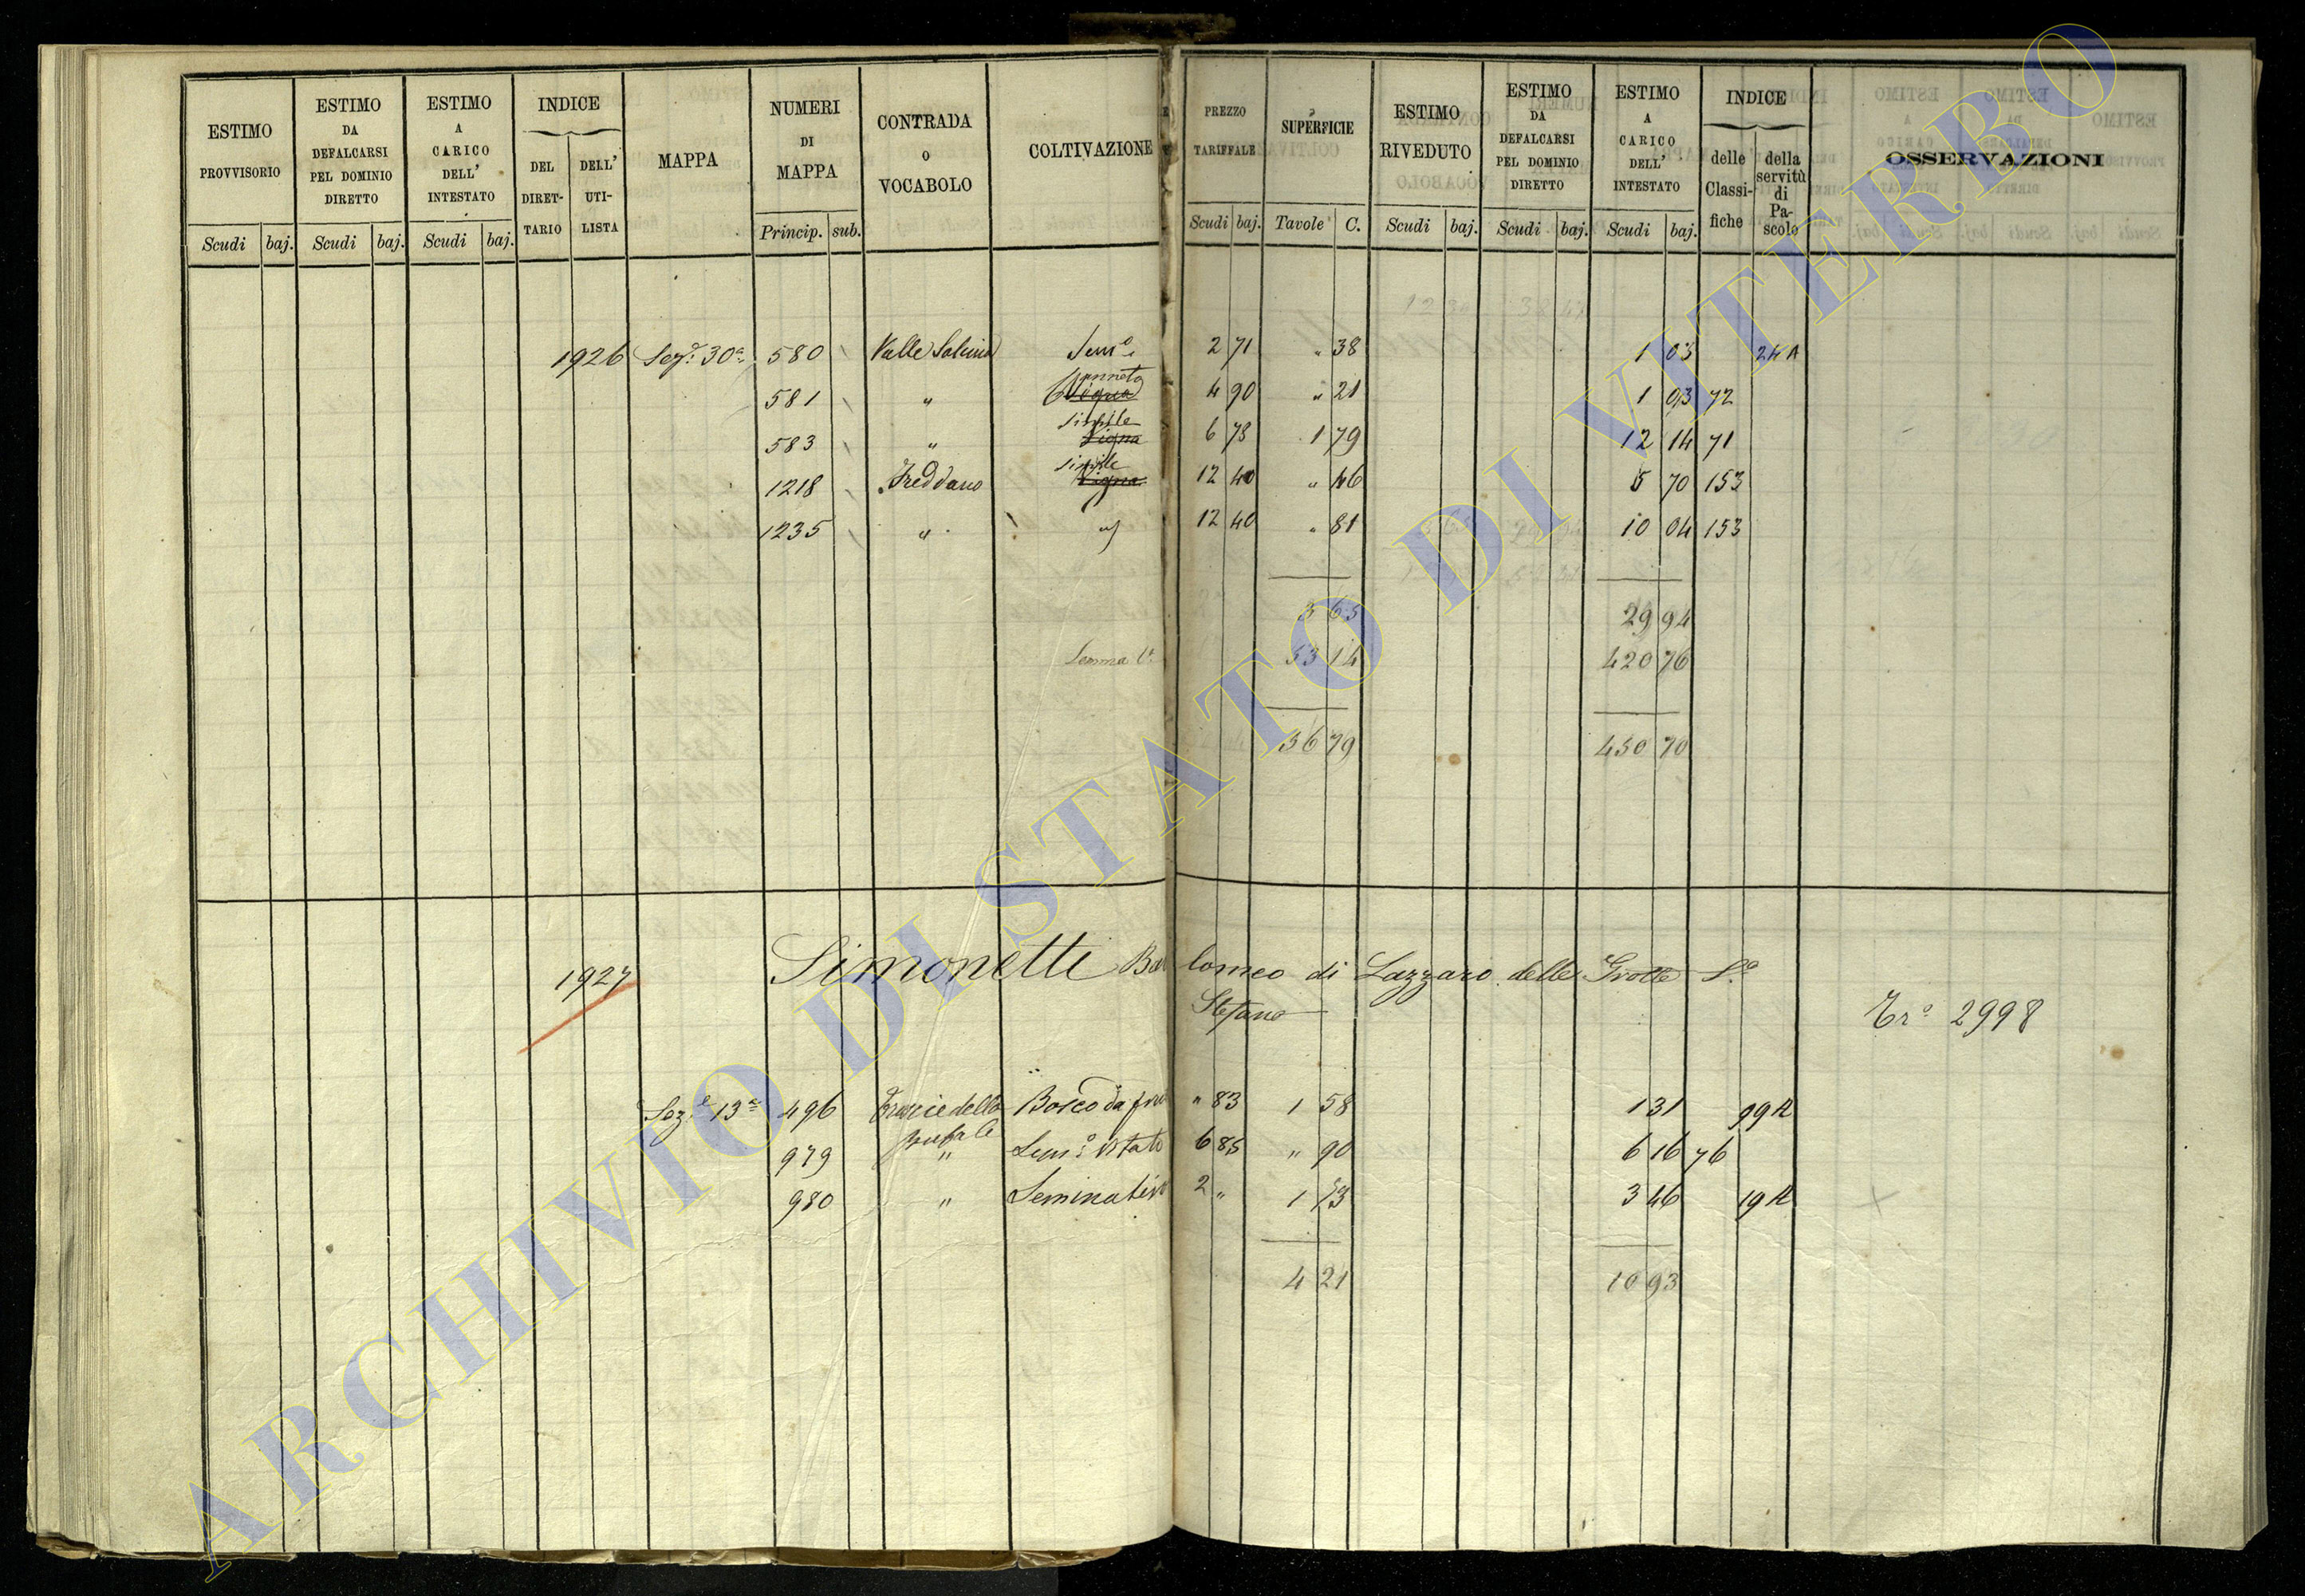 ESTIMO PROVVISORIO
ESTIMO DA DEFALCARSI PEL DOMINIO DIRETTO
ESTIMO A CARICO DELL' INTESTATO
INDICE
DEL DIRET- TARIO
DELL' UTI- LISTA
MAPPA
NUMERI DI MAPPA
CONTRADA O VOCABOLO
COLTIVAZIONE
PREZZO TARIFFALE
SUPERFICIE
ESTIMO RIVEDUTO
ESTIMO DA DEFALCARSI PEL DOMINIO DIRETTO
ESTIMO A CARICO DELL' INTESTATO
INDICE
delle Classi- fiche
della servitù di Pa- scolo
OSSERVAZIONI
Scudi baj. Scudi baj. Scudi baj. Princip. sub. Scudi baj. Tavole C. Scudi baj. Scudi baj. Scudi baj.
1926 Sez.e 30a 580 Valle Sem.o 2 71 " 38 1 03 24 A
581 " Vigna 4 90 " 21 1 03 72
583 " simile Vigna 6 78 1 79 12 14 71
1218 Freddano simile Vigna 12 40 " 46 5 70 153
1235 " " 12 40 " 81 10 04 153
3 65 29 94
Somma 33 14 420 76
36 79 450 70
1927 Simonetti Bar tolomeo di Lazzaro delle Grotte S.o
Stefano
Tr.o 2998
Sez.e 13a 496 della Bosco da " 83 1 58 1 31 99 A
979 " Sem.o Vitato 6 85 " 90 6 16 76
980 " Seminativo 2 " 1 73 3 46 19 A
4 21 10 93
ARCHIVIO DI STATO DI VITERBO